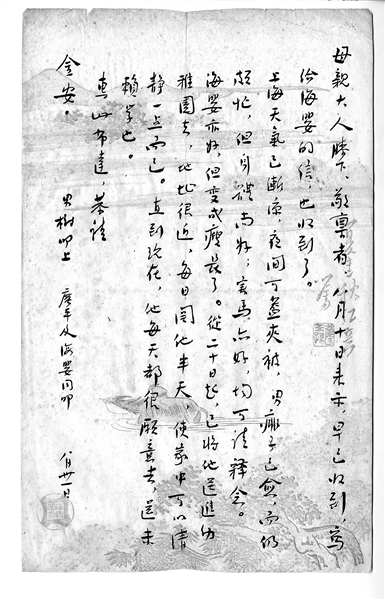 母親大人膝下，敬稟者，八月十日来示，早已收到，寫
给海嬰的信，也收到了。
上海天氣已漸凉，夜间可蓋夾被，男痱子已愈，而仍
頗忙，但身體尚好，害馬亦好，均可請釋念。
海嬰亦好，但变成瘦長了。從二十日起，已将他送進幼
稚園去，地址很近，每日闗他半天，使家中可以清
静一点而已。直到現在，他每天都很願意去，還未
賴学也。
專此布達，恭請
金安。
男樹叩上 廣平及海嬰同叩 八月卅一日